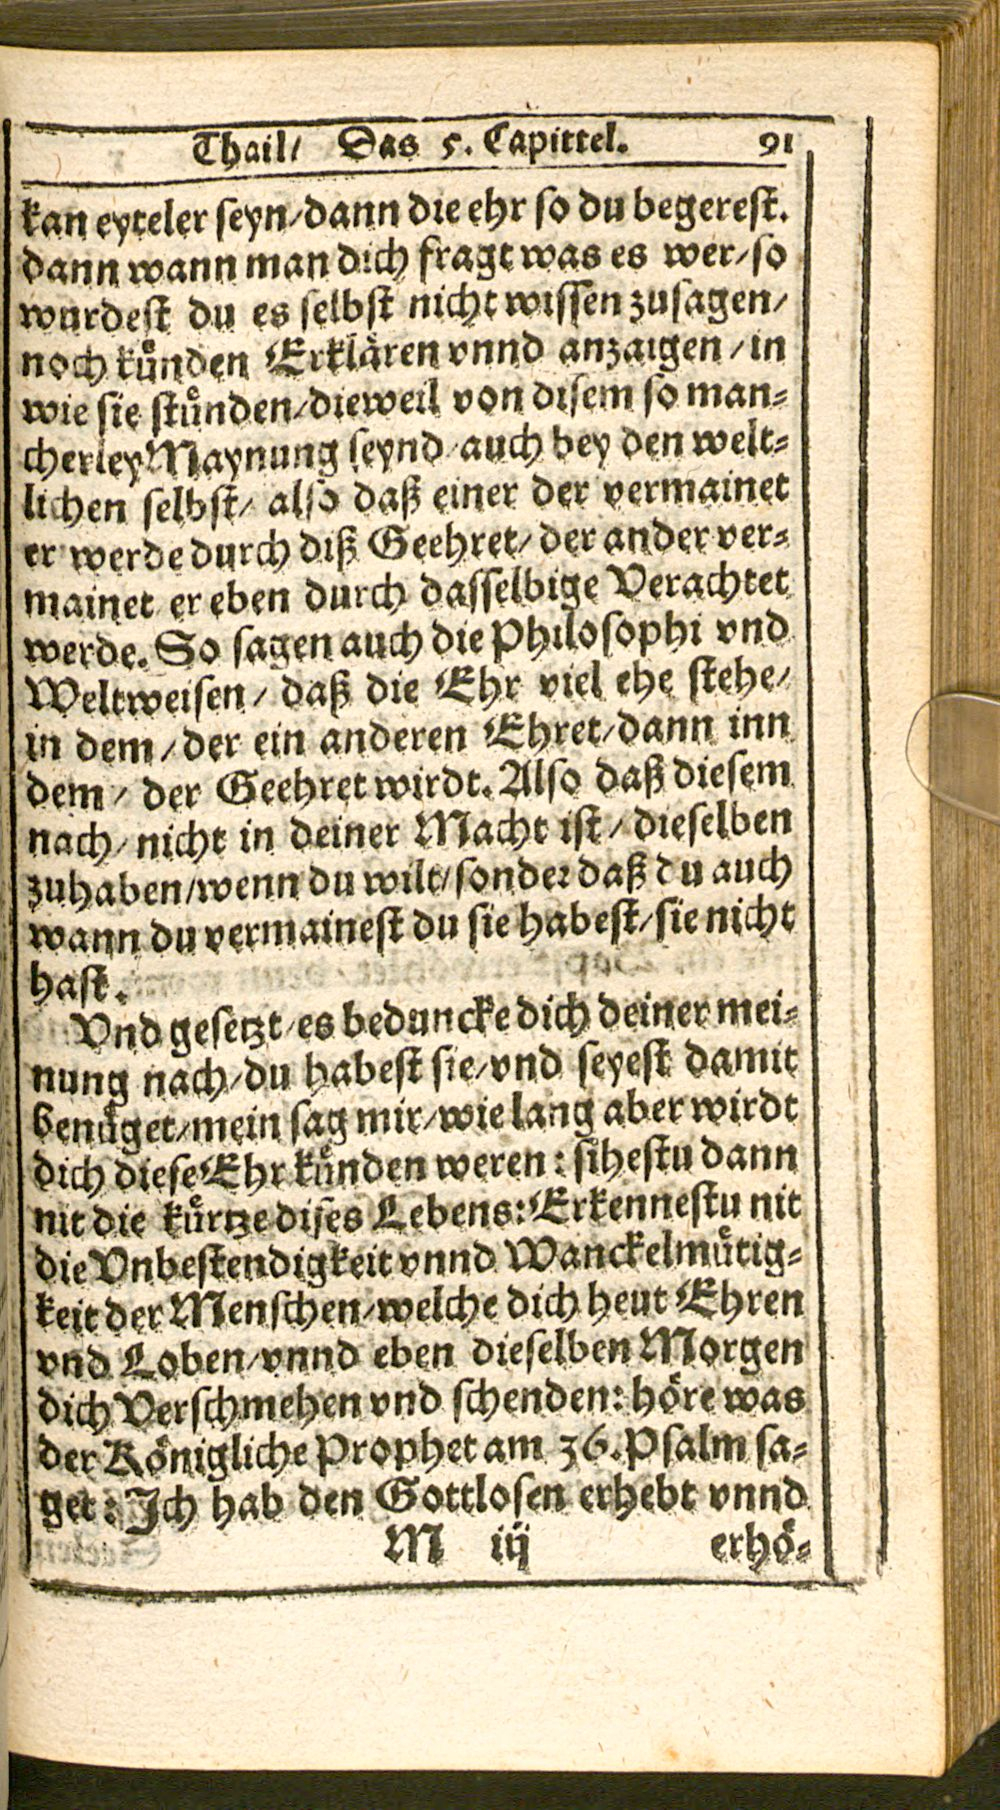 Thail/ Das 5. Capittel. 91
kan eyteler seyn/dann die ehr so du begerest.
dann wann man dich fragt was es wer/so
wurdest du es selbst nicht wissen zusagen/
noch kuͤnden Erklaͤren vnnd anzaigen/in
wie sie stuͤnden/dieweil von disem so man⸗
cherley Maynung seynd/auch bey den welt⸗
lichen selbst/ also daß einer der vermainet
er werde durch diß Geehret/der ander ver⸗
mainet er eben durch dasselbige Verachtet
werde. So sagen auch die Philosophi vnd
Weltweisen/ daß die Ehr viel ehe stehe/
in dem/der ein anderen Ehret/dann inn
dem/ der Geehret wirdt. Also daß diesem
nach/nicht in deiner Macht ist/dieselben
zuhaben/wenn du wilt/sonder daß du auch
wann du vermainest du sie habest/sie nicht
hast.
Vnd gesetzt/es beduncke dich deiner mei⸗
nung nach/du habest sie/vnd seyest damit
benuͤget/mein sag mir/wie lang aber wirdt
dich diese Ehr kuͤnden weren: sihestu dann
nit die kuͤrtze dises Lebens: Erkennestu nit
die Vnbestendigkeit vnnd Wanckelmuͤtig⸗
keit der Menschen/welche dich heut Ehren
vnd Loben/vnnd eben dieselben Morgen
dich Verschmehen vnd schenden: hoͤre was
der Koͤnigliche Prophet am 36. Psalm sa⸗
get: Ich hab den Gottlosen erhebt vnnd
M iij erhoͤ⸗